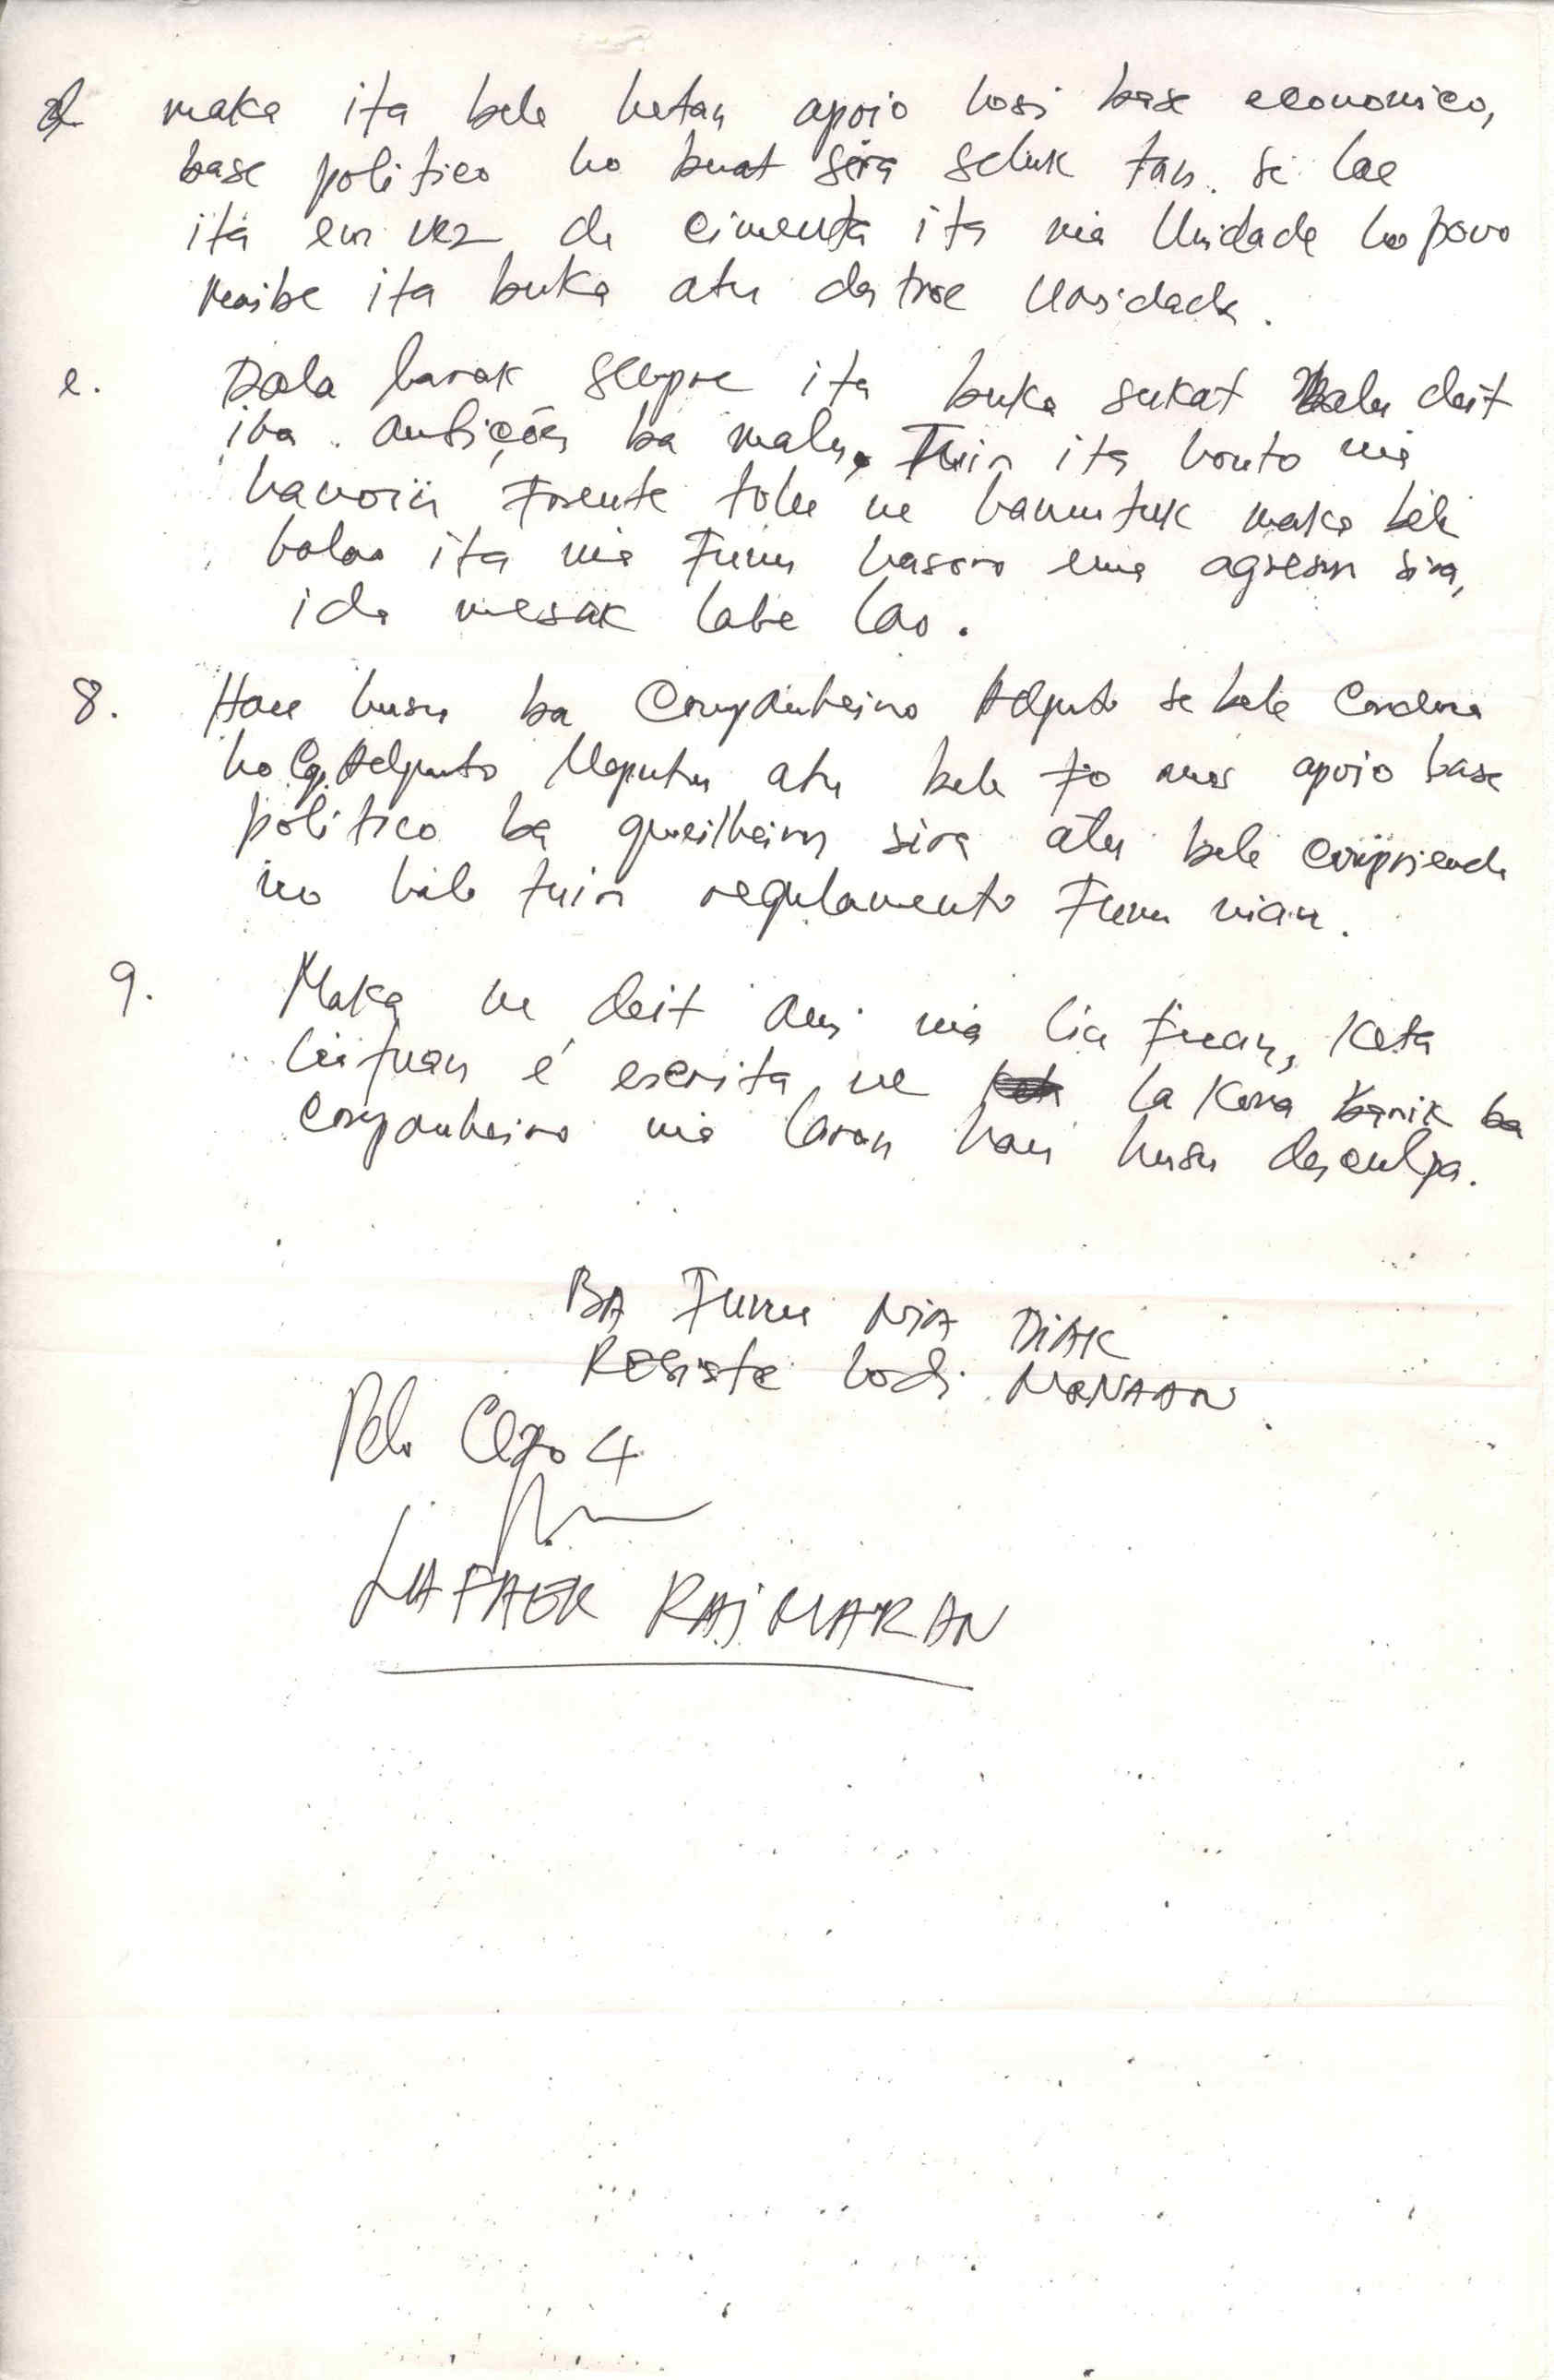 d maka ita bele hetan apoio hosi base economico,
base politico ho buat sira seluk tan. Se lae
ita em vez de cimenta ita nia Unidade ho povo
maibe ita buka atu destroe Unidade.
e. Dala barak sempre ita buka sukat malu deit
iha ambições ba malu, Tuir ita hotu nia
hanoin Frente tolu ne hamutuk maka bele
halao ita nia Funu hasoro ema agresor sira,
ida mesak labe lao.
8. Hau husu ba Companheiro Adjunto se bele Cordena
ho Cp. Adjunto ata bele fo mos apoio base
politico ba guerilheiros sira atu bele compriende
no hili tuir regulamento Funu nian.
9. Maka ne deit ami nia lia fuan, Keta
liafuan é escrita ne la Kona banik ba
Companheiro nia laran hau husu desculpa.
BA Funu NIA DIAK
Resiste hodi MANAAN.
Pelo Cexo 4
LAFAEK RAI MARAN